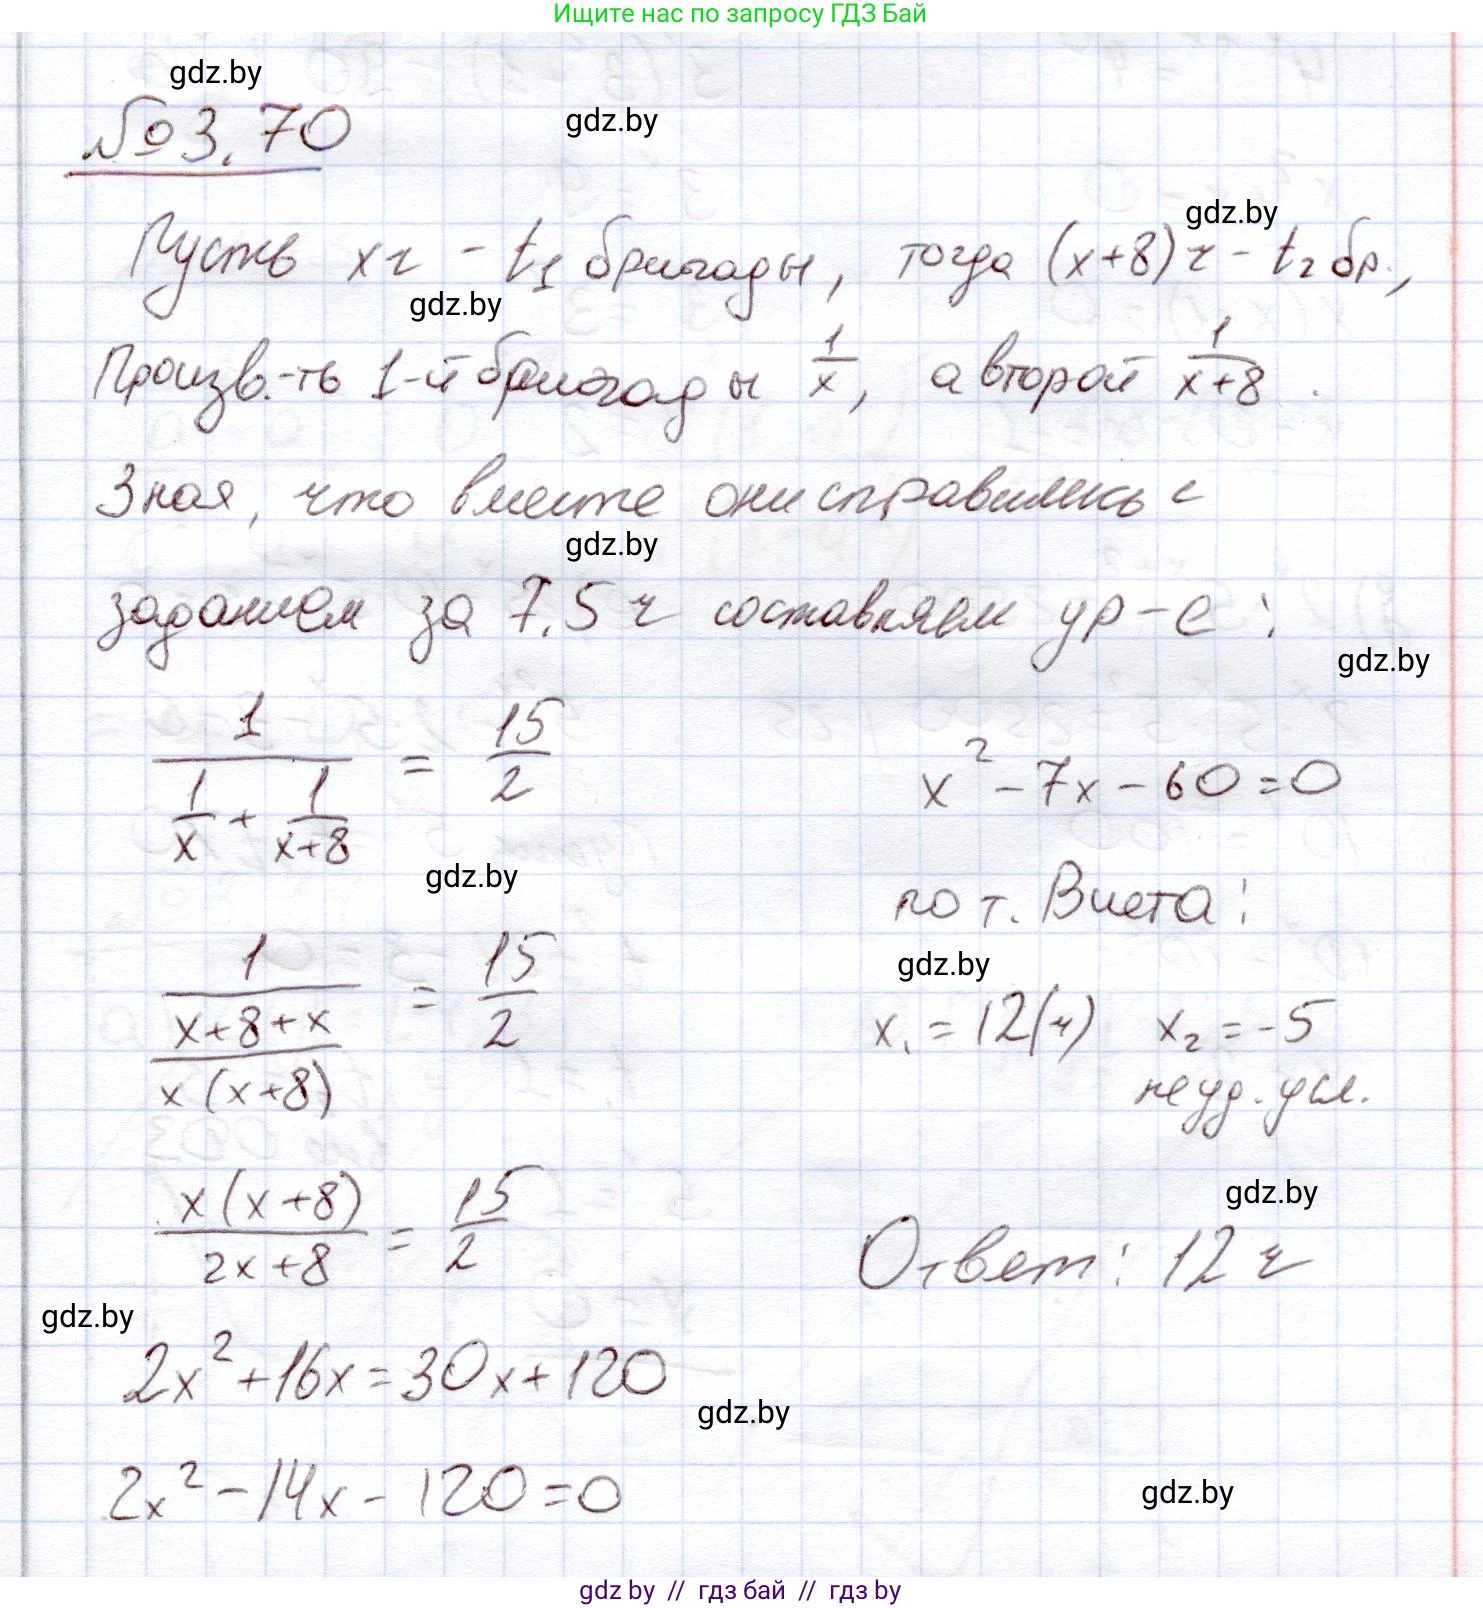 Ищите нас по запросу ГДЗ Бай
gdz.by
№ 3.70
gdz.by
gdz.by
Пусть x ч - t₁ бригады, тогда (x+8) ч - t₂ бр.,
gdz.by
Произв.-ть 1-й бригады 1/x, а второй 1/(x+8).
Зная, что вместе они справились с
gdz.by
заданием за 7,5 ч составляем ур-е:
gdz.by
1/(1/x + 1/(x+8)) = 15/2
gdz.by
1/((x+8+x)/(x(x+8))) = 15/2
x(x+8)/(2x+8) = 15/2
gdz.by
2x²+16x=30x+120
gdz.by
2x²-14x-120=0
x²-7x-60=0
по т. Виета:
gdz.by
x₁=12(ч) x₂=-5
не уд. усл.
gdz.by
Ответ: 12 ч
gdz.by
gdz by // гдз бай // гдз by